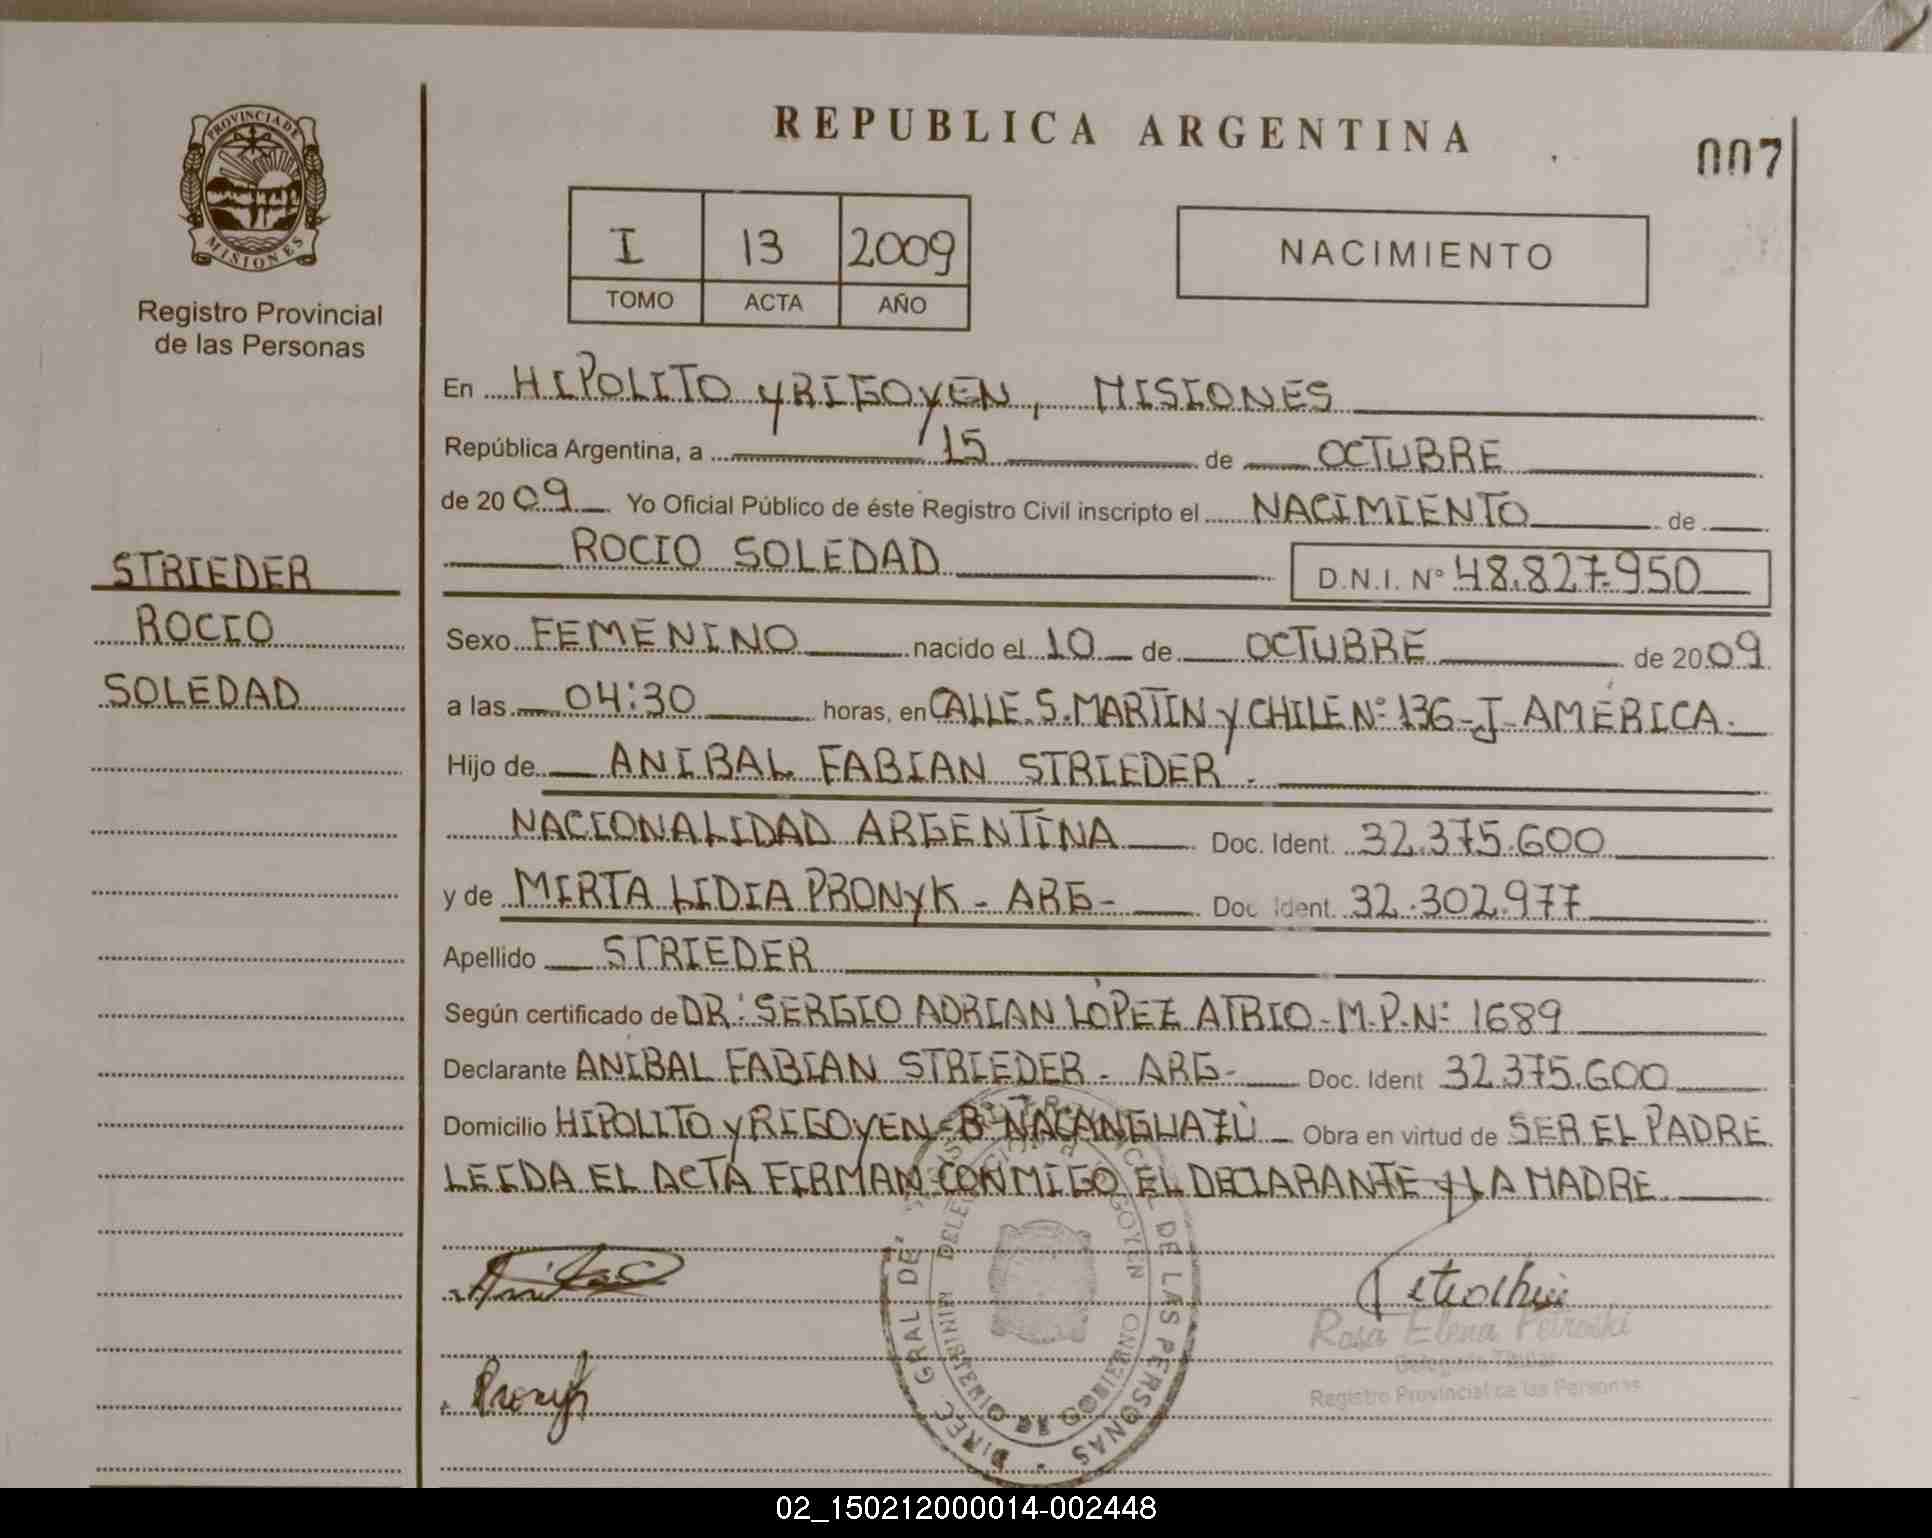 PROVINCIA DE
MISIONES
Registro Provincial
de las Personas
STRIEDER
ROCIO
SOLEDAD
REPUBLICA ARGENTINA
007
I 13 2009
TOMO ACTA AÑO
NACIMIENTO
En HIPOLITO YRIGOYEN, MISIONES
República Argentina, a 15 de OCTUBRE
de 2009 Yo Oficial Público de éste Registro Civil inscripto el NACIMIENTO de
ROCIO SOLEDAD D.N.I. N° 48.827.950
Sexo FEMENINO nacido el 10 de OCTUBRE de 2009
a las 04:30 horas, en CALLE S. MARTIN Y CHILE Nº 136-J-AMÉRICA.
Hijo de ANIBAL FABIAN STRIEDER -
NACIONALIDAD ARGENTINA Doc. Ident. 32.375.600
y de MIRTA LIDIA PRONYK - ARG- Doc. Ident. 32.302.977
Apellido STRIEDER
Según certificado de DR: SERGIO ADRIAN LÓPEZ ATRIO - M.P.Nº 1689
Declarante ANIBAL FABIAN STRIEDER - ARG- Doc. Ident 32.375.600
Domicilio HIPOLITO YRIGOYEN-Bº ÑACANGUAZÚ Obra en virtud de SER EL PADRE
LEIDA EL ACTA FIRMAN CONMIGO EL DECLARANTE Y LA MADRE
Rosa Elena Petroski
Delegada Titular
Registro Provincial de las Personas
DIREC. GRAL DE DE LAS PERSONAS
MINISTERIO DE GOBIERNO
02_150212000014-002448